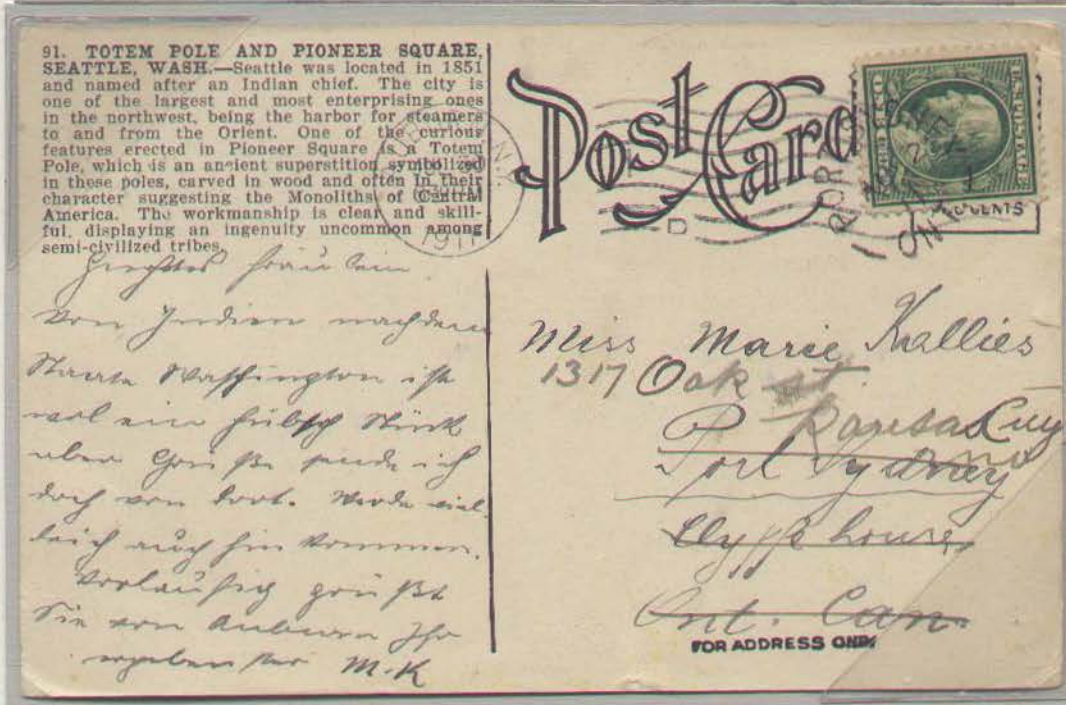 91. TOTEM POLE AND PIONEER SQUARE,
SEATTLE, WASH.—Seattle was located in 1851
and named after an Indian chief. The city is
one of the largest and most enterprising ones
in the northwest, being the harbor for steamers
to and from the Orient. One of the curious
features erected in Pioneer Square is a Totem
Pole, which is an ancient superstition symbolized
in these poles, carved in wood and often in their
character suggesting the Monoliths of Central
America. The workmanship is clear and skill-
ful, displaying an ingenuity uncommon among
semi-civilized tribes.
Post Card
U.S. POSTAGE
1911
D
PORT SYDNEY
Geehrtes Fräulein
von Indien nach dem
Staate Washington ist
wol ein hübsch Stück
aber Grüße sende ich
doch von dort. Werde viel
leich auch hin kommen.
Vorläufig grüßt
Sie von Auburn Ihr
ergebenster M.K
Miss Marie Kallies
1317 Oak st.
Kansas City
Mo
Port Sydney
Clyffe house
Ont. Can.
FOR ADDRESS ONLY